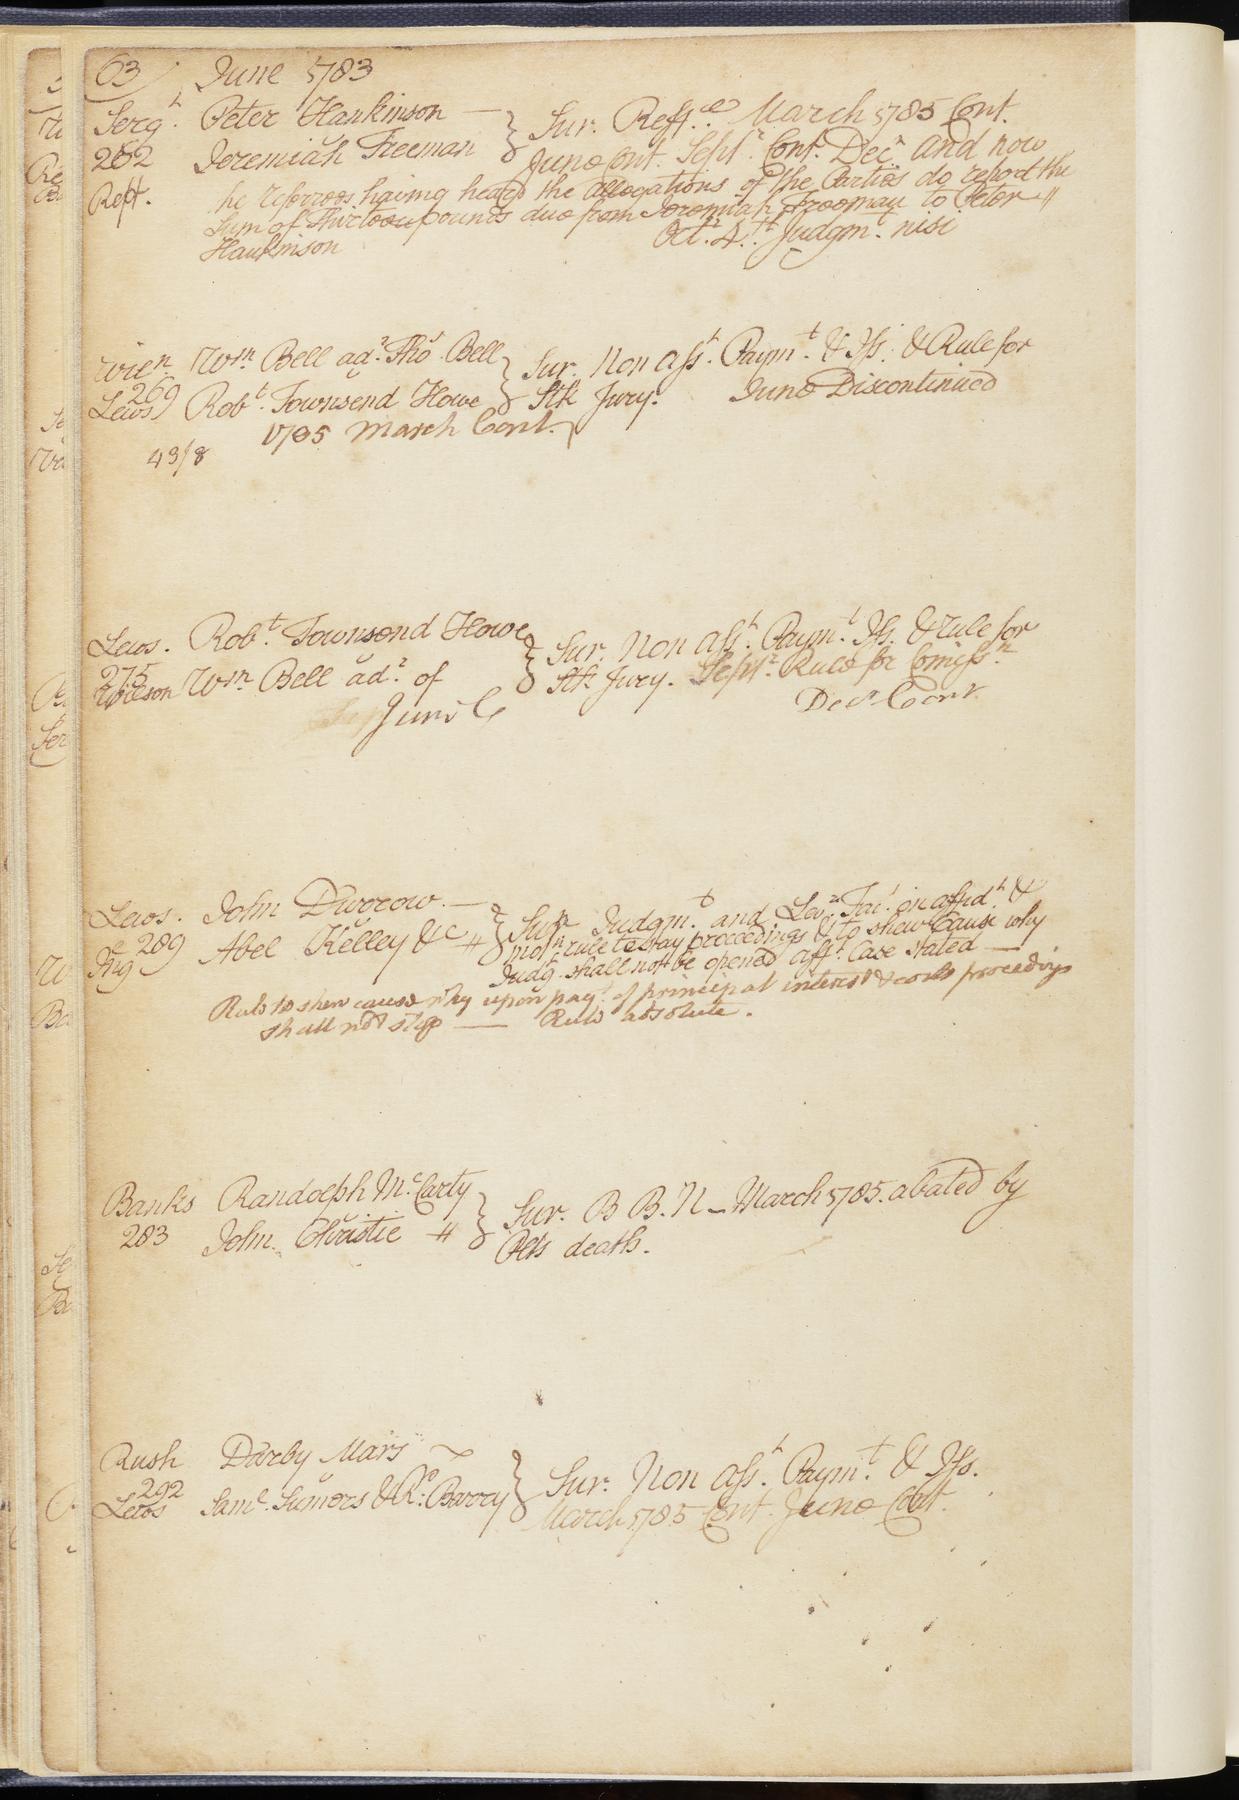 63 June 1783
Serg.t Peter Hankinson — } Sur. Reff.ce March 1785 Cont.
262 v Jeremiah Freeman June Cont. Sept.r Cont. Dec.r and now
Reft. he referrees having heard the allegations of the Parties do report the
Sum of thirteen pounds due from Jeremiah Freeman to Peter
Hankinson Oct. 4.th Judgm.t nisi
Wm. Bell ad.r Tho.s Bell } Sur. Non Ass.t Paym.t & Iss. & Rule for
269 v
Lews Rob.t Townsend Howe Stk Jury. June Discontinued
1785 March Cont.
43/8
Lews. Rob.t Townsend Howe } Sur. Non Ass.t Paym.t Iss. & rule for
275 v
Wilson Wm. Bell ad.r of Stk Jury. Sept.r Rule for Comiss.n
June C Dec.r Cont.
Lews. John Durrow — } Sur. Judgm.t and Lev. Fa. on affid.t &
289 v Abel Kelley &c mot.n rule to stay proceedings & to shew Cause why
Judg.t shall not be opened aff.t Case stated —
Rule to shew cause why upon pay.t of principal interest & costs proceedings
shall not stop — Rule absolute.
Banks Randolph Mc.Carty } Sur. B B. N — March 1785. abated by
283 v John Christie Plt's death.
Rush Darby Mars } Sur. Non Ass.t Paym.t & Iss.
292 v
Lews Sam.l Sumers & R.d Barry March 1785 Cont. June Cont.